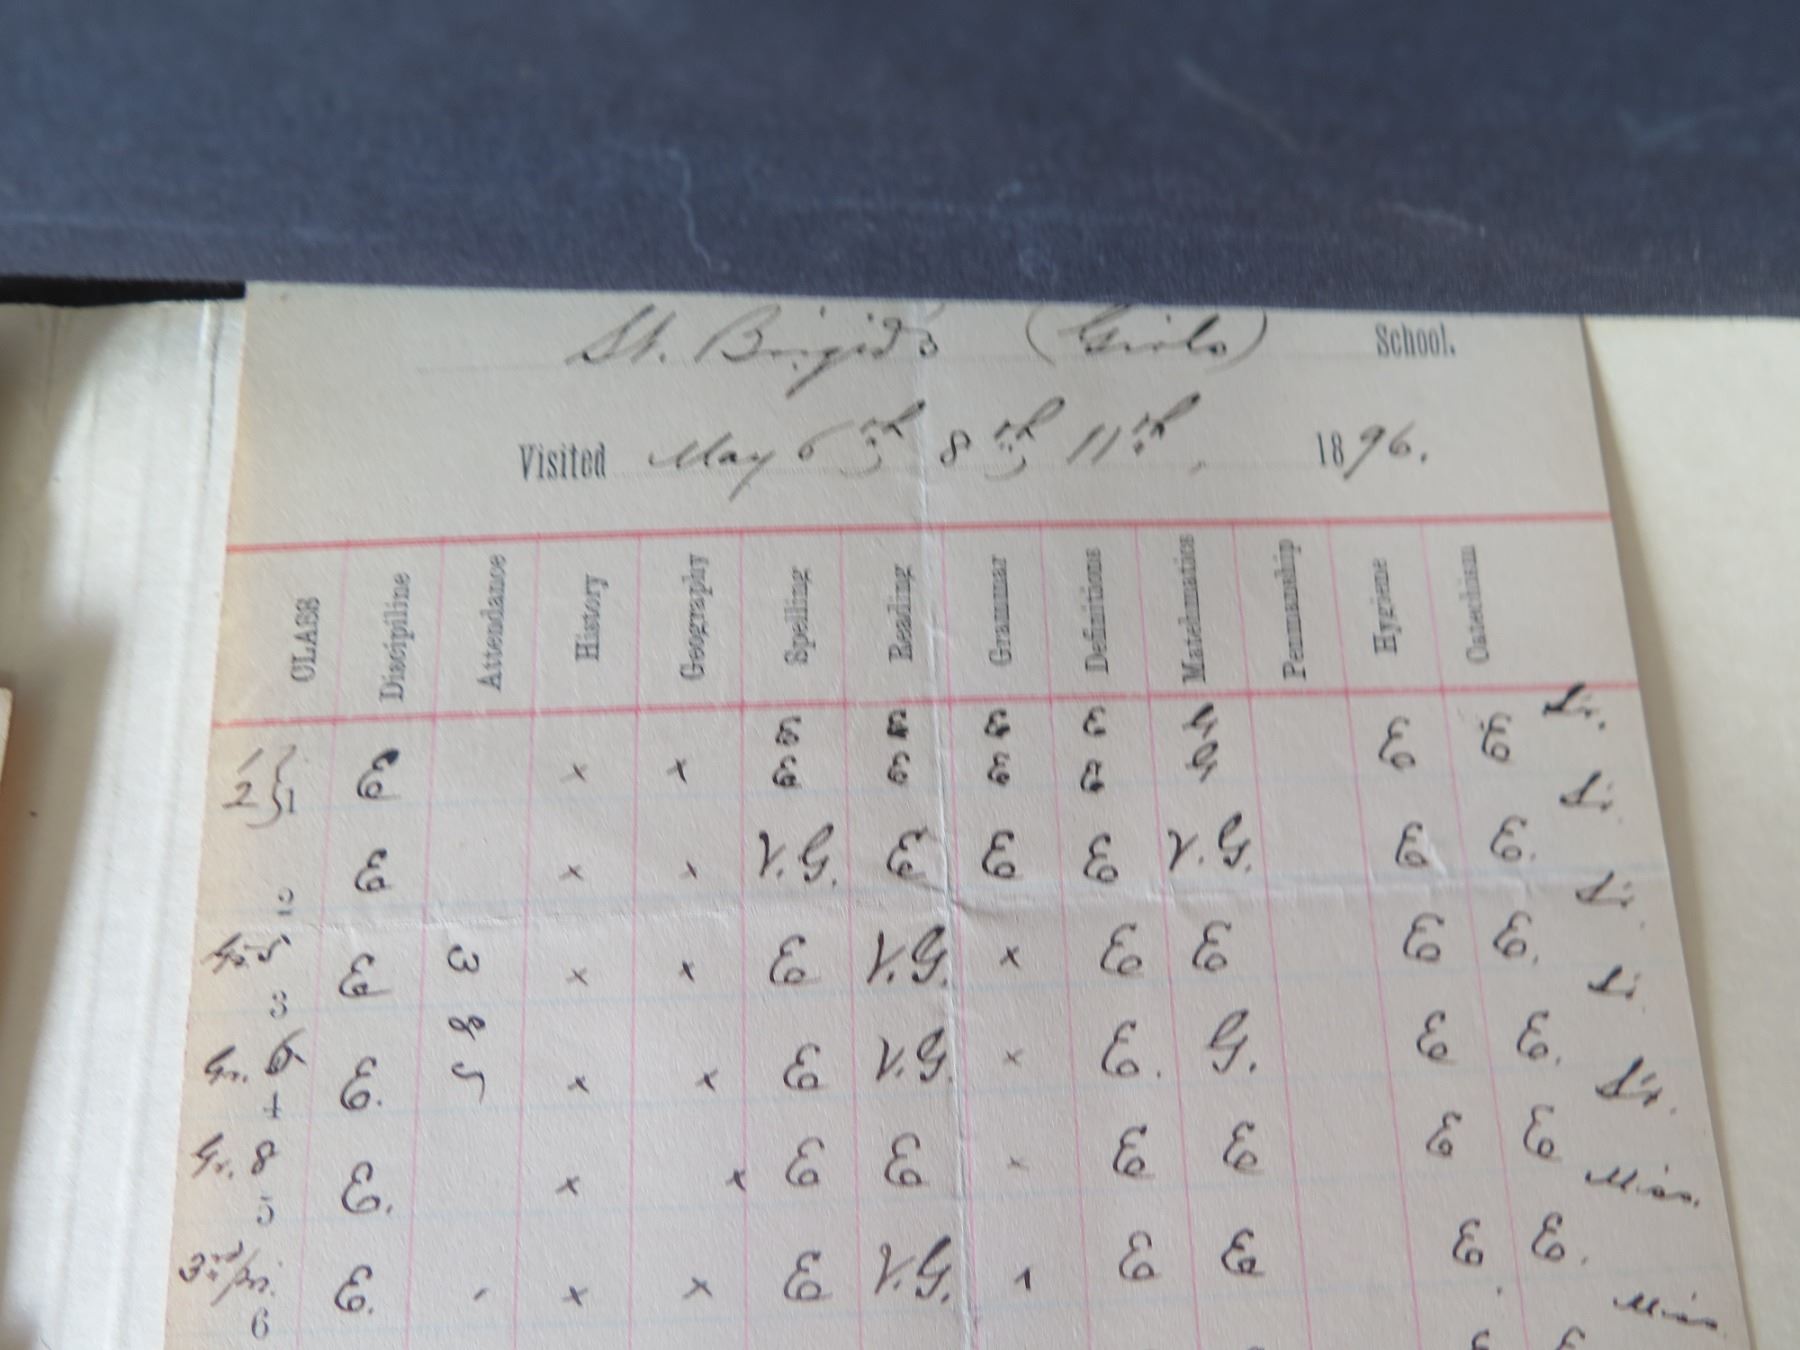 St. Brigid's (Girls) School.
Visited May 6th 8th 11th, 1896.
CLASS Discipline Attendance History Geography Spelling Reading Grammar Definitions Mathematics Penmanship Hygiene Catechism
E E E E G Sr.
1 2 1 E x x E E E E G E E
Sr.
2 E x x V.G. E E E V.G. E E.
Sr.
Gr. 5 3 E x x E V.G. x E E E E.
Sr.
Gr. 6 4 E. x x E V.G. x E. G. E E.
Sr.
Gr. 8 5 E. x x E E x E E E E
Miss.
3rd 6 E. x x E V.G. E E E E.
Miss.